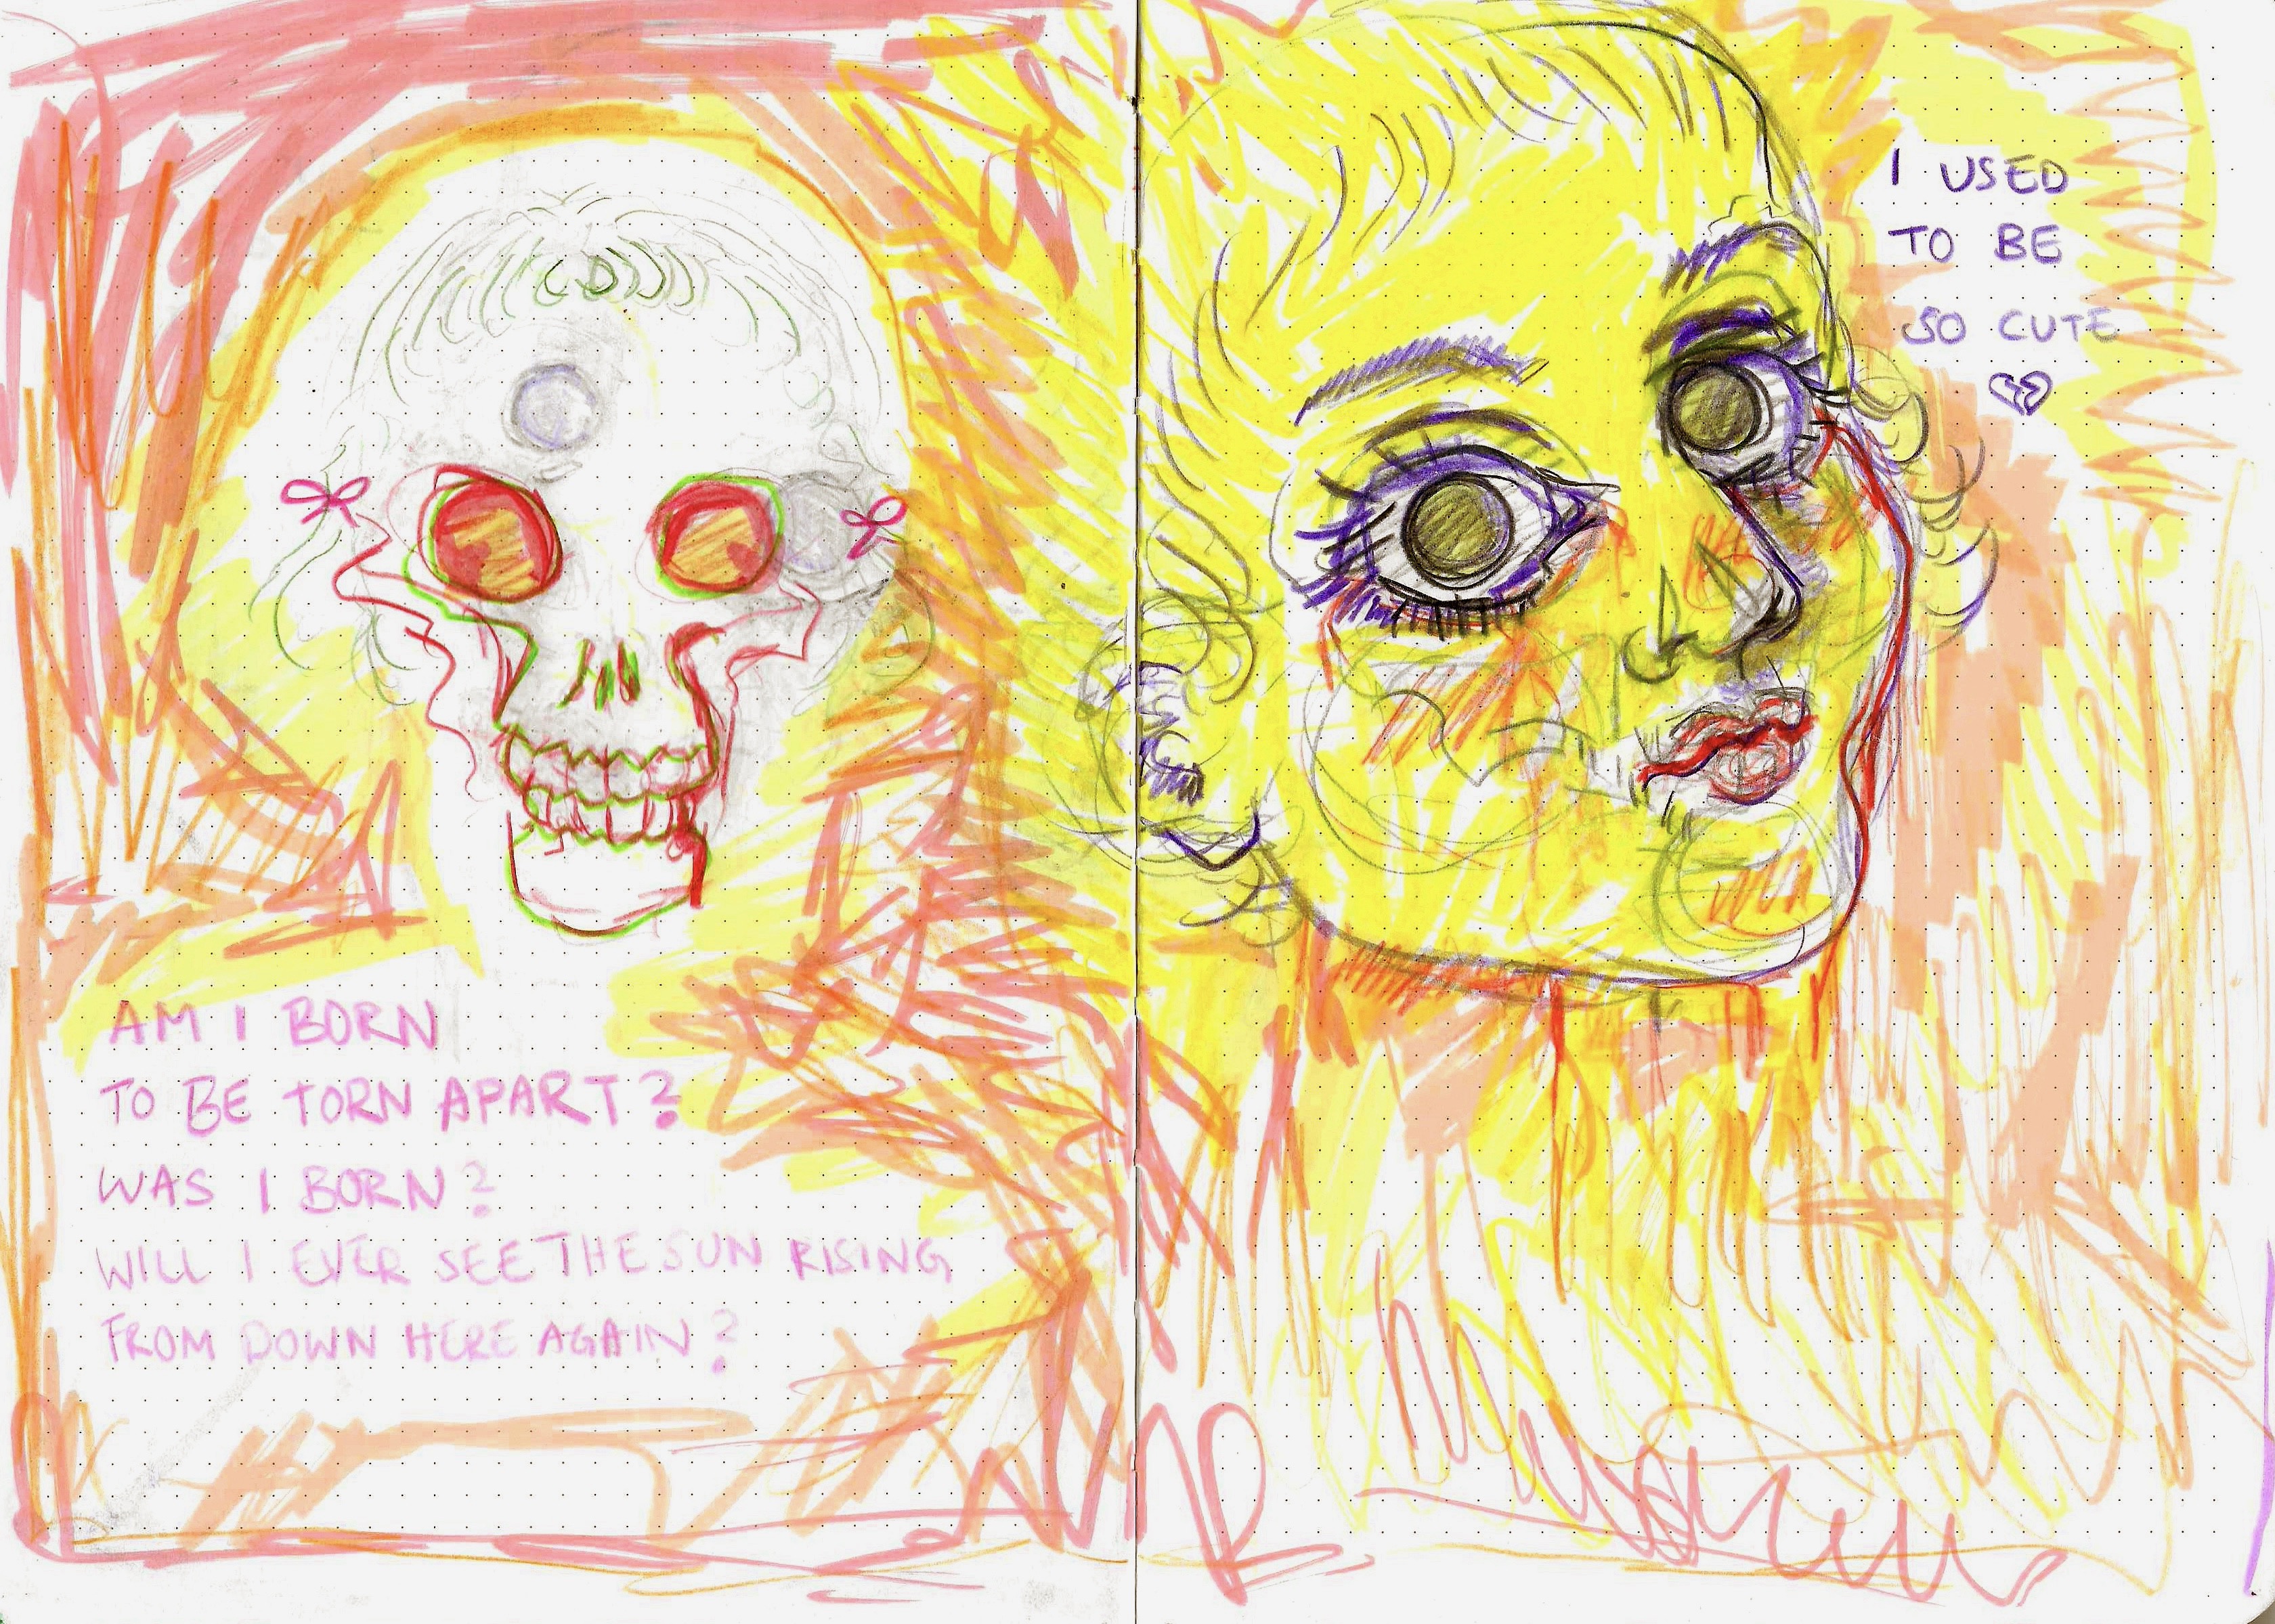 AM I BORN
TO BE TORN APART?
WAS I BORN?
WILL I EVER SEE THE SUN RISING,
FROM DOWN HERE AGAIN?
I USED
TO BE
SO CUTE